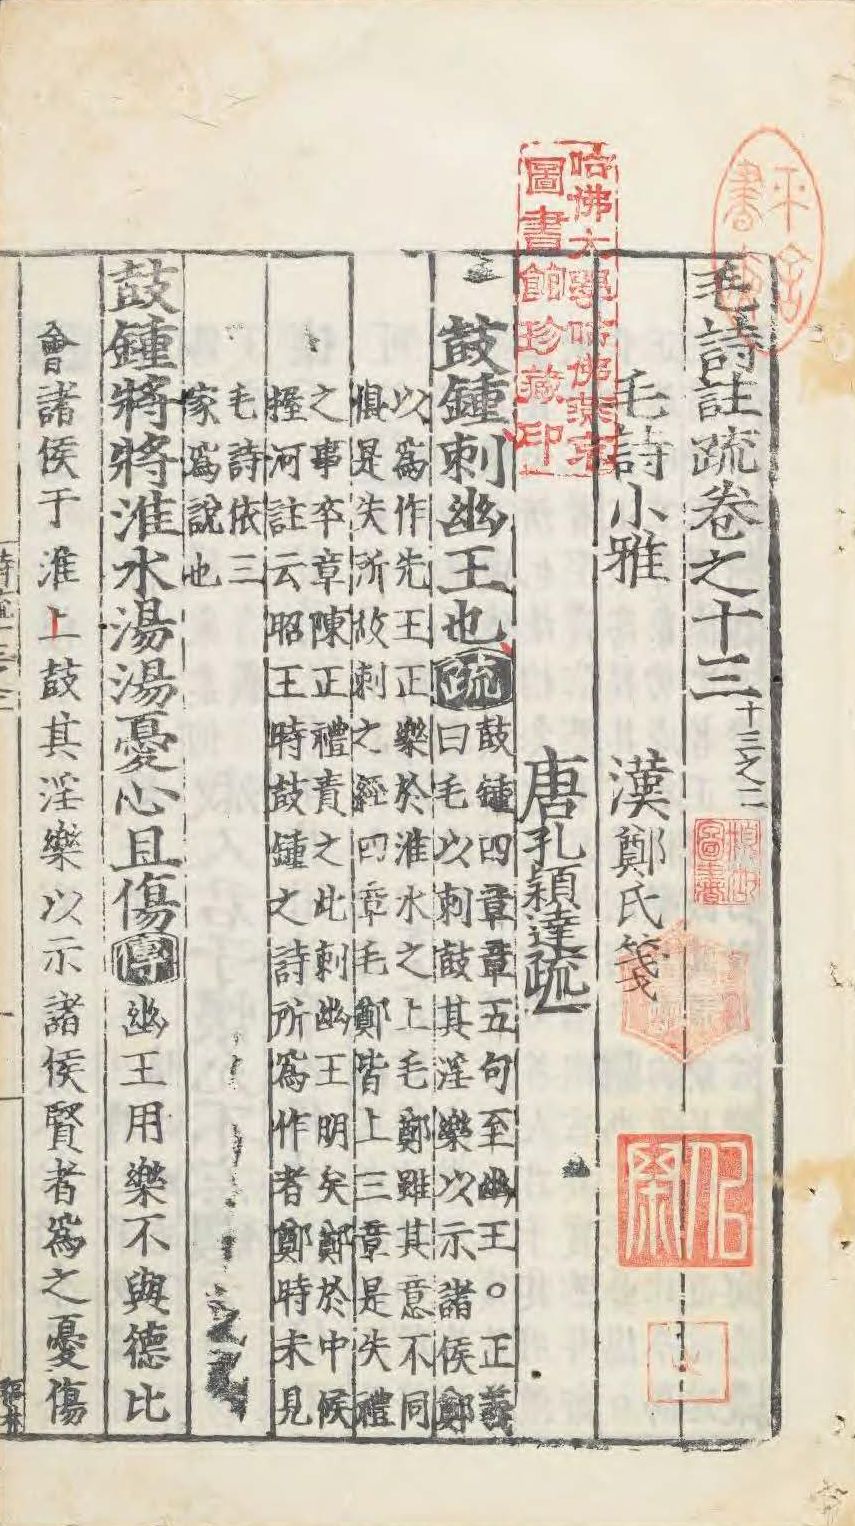 毛詩註疏卷之十三 十三之二
毛詩小雅 漢鄭氏箋
唐孔穎達疏
鼓鍾刺幽王也疏鼓鍾四章章五句至幽王○正義
曰毛以刺鼓其淫樂以示諸侯鄭
以爲作先王正樂於淮水之上毛鄭雖其意不同
俱是失所故刺之經四章毛鄭皆上三章是失禮
之事卒章陳正禮責之此刺幽王明矣鄭於中候
握河註云昭王時鼓鍾之詩所爲作者鄭時未見
毛詩依三
家爲說也
鼓鍾將將淮水湯湯憂心且傷傳幽王用樂不與德比
會諸侯于淮上鼓其淫樂以示諸侯賢者爲之憂傷
哈佛大學哈佛燕京
圖書館珍藏印